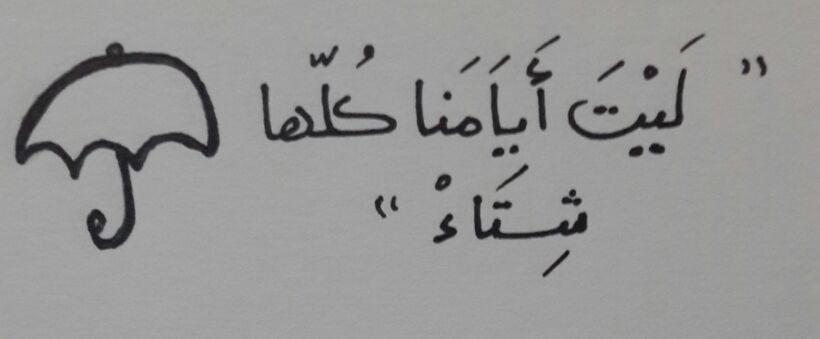 " لَيْتَ أَيَامَنَا كُلّها
شِتَاءْ "